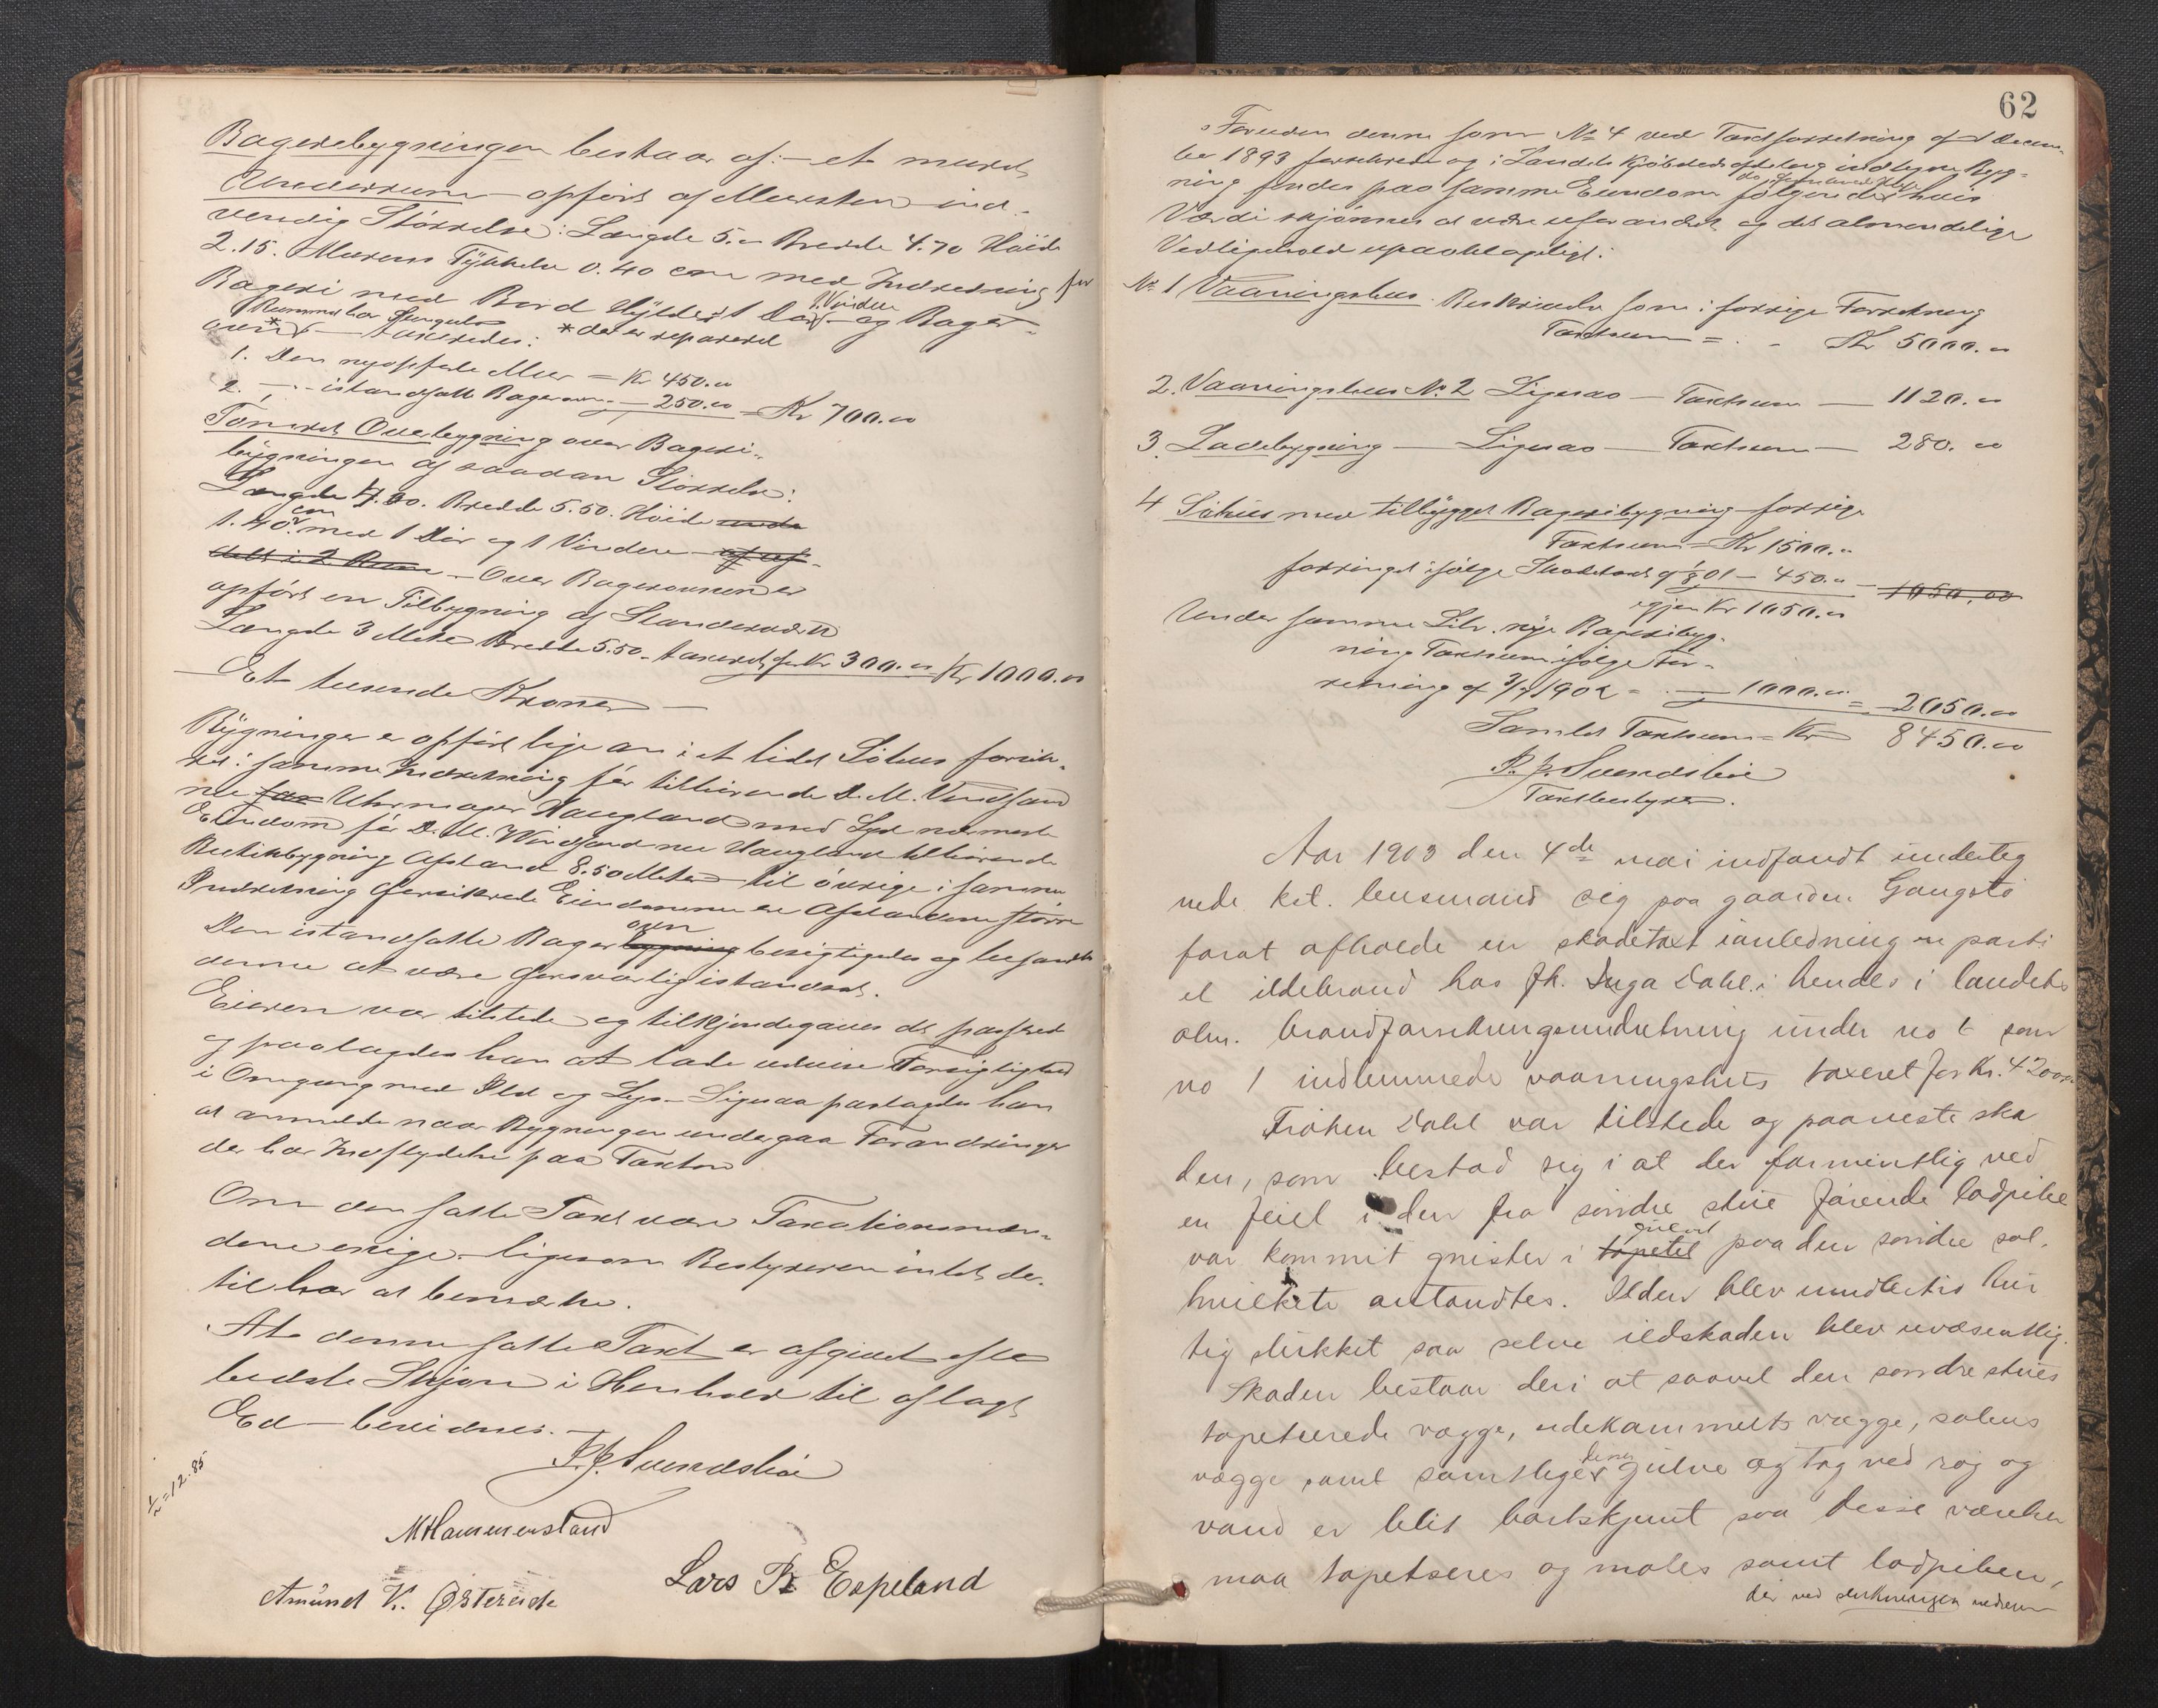 Bageribygningen bestaar af: – et muret
Underrum – opført af Mursten – ind-
vendig Størrelse: Længde 5.00 Bredde 4.70 Høide
2.15. Murens Tykkelse 0.40 cm med Indretning for
Bageri med Bord Hylder 1 Dør 1 Vindue og Bager-
ovn taxeredes: * der er repareret
1. Den nyopførte Mur = Kr 450.00
2. –"– istandsatte Bagerovn – 250.00 = Kr 700.00
Tømret Overbygning over Bageri-
bygningen af saadan Størrelse:
Længde 4.00. Bredde 5.50. Høide
1.40 cm med 1 Dør og 1 Vindue
delt i 2 Rum – Over Bagerovnen er
opført en Tilbygning af Standerværk
Længde 3 Meter Bredde 5.50 – taxeret for Kr 300.00 Kr 1000.00
– Et tusende Kroner –
Bygningen er opført lige an i et lidet Søhus forsik-
ret i samme Indretning før tilhørende D. M. Vindsand
nu Uhrmager Haugland med Hyd nærmeste
Eiendom før D. M. Windsand nu Haugland tilhørende
Butikbygning Afstand 8.50 Meter – til øvrige i samme
Indretning forsikrede Eiendomme er Afstanden større
Den istandsatte Bagerovn besigtigedes og befandtes
denne at være forsvarlig istandsat.
Eieren var tilstede og tilkjendegaves det passerede
og paalagdes han at lade udvise Forsigtighed
i Omgang med Ild og Lys – Ligesaa paalagdes han
at anmelde naar Bygningen undergaar Forandringer
der har Indflydelse paa Taxten.
Om den satte Taxt var Taxationsmæn-
dene enige – ligesom Bestyreren intet der-
til har at bemærke.
At denne satte Taxt er afgivet efter
bedste Skjøn i Henhold til aflagt
Ed – bevidnes. –
P. J. Svendsbøe
M Hammersland
Amund K. Østereide
Lars P. Espeland
12.85
62
Foruden denne som No 4 ved Taxtforretning af Decem-
ber 1893 forsikrede og i Landets Kjøbstedafdeling indtegnede Byg-
ning findes paa samme Eiendom følgende huis
Værdi skjønnes at være uforandret og det almindelige
Vedligehold upaaklageligt:
No 1 Vaaningshus. Beskrivelse som i forrige Forretning
Taxtsum = . – Kr 5000.00
2. Vaaningshus No 2 Ligesaa – Taxtsum – 1120.00
3. Ladebygning – Ligesaa – Taxtsum – 280.00
4 Søhus med tilbygget Bageribygning forrige
Taxtsum = Kr 1500.00
forringet ifølge Skadetaxt af 01 – 450.00 – 1050.00
igjen Kr 1050.00
Under samme Litr. nye Bageribyg-
ning Taxtsum ifølge For-
retning af 3/7 1902 = – 1000.00 = 2050.00
Samlet Taxtsum = Kr 8450.00
P. J. Svendsbøe
Taxtbestyrer.
Aar 1903 den 4de mai indfandt underteg
nede kst. lensmand sig paa gaarden Gaugstø
forat afholde en skadetaxt ianledning en parti
el ildebrand hos Frk. Inga Dahl i hendes i landets
alm. brandforsikringsindretning under no som
no 1 indlemmede vaaningshus taxeret for Kr. 4200.00
Frøken Dahl var tilstede og paaviste ska
den, som bestod sig i at der formentlig ved
en feiel i den fra søndre stue førende ladpibe
var kommit gnister i gulvet paa den søndre sal,
hvilkete antændtes. Ilden blev imidlertid hur
tig slukket saa selve ildskaden blev uvæsentlig.
Skaden bestaar deri at saavel den søndre stues
tapetserede vægge, sidekammerets vægge, salens
vægge samt samtliges deres gulve og tag ved røg og
vand er blit bortskjemt saa disse værelser
maa tapetseres og males samt ladpiben,
der ved slukningen